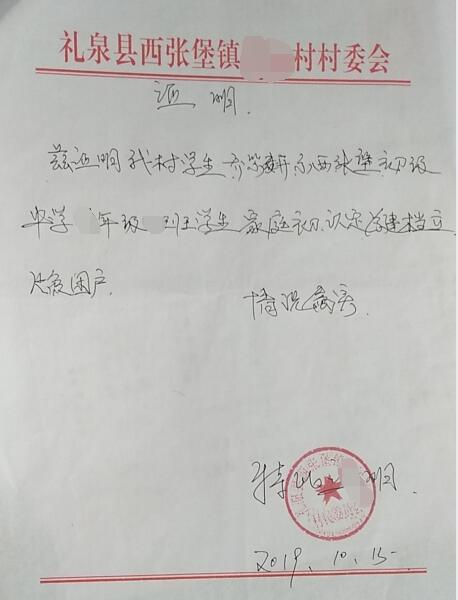 礼泉县西张堡镇 村村委会
证 明
兹证明我村学生 系西张堡初级
中学 年级 班学生 家庭初认定为建档立
贫困户.
情况属实.
特此 明.
2019. 10. 15